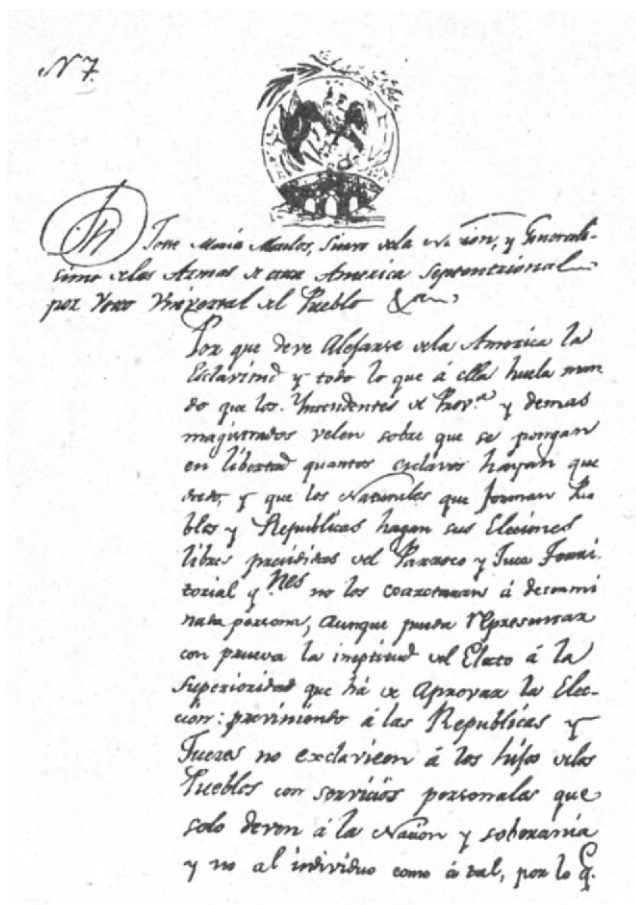 N 7
Jose Maria Morelos, Siervo dela Nacion, y Generali-
simo delas Armas de esta America Septentrional
por Voto Universal del Pueblo &a
Por que deve Alejarse dela America la
Esclavitud y todo lo que á ella huela man
do que los Intendentes de Prov.a y demas
magistrados velen sobre que se pongan
en libertad quantos esclavos hayan que
dado, y que los Naturales que forman Pue
blos y Republicas hagan sus Elecciones
libres precididas del Parroco y Juez Terri-
torial q.nes no los coartaran á determi
nada persona, aunque pueda representar
con prueva la ineptitud del Electo á la
Superioridad que há de Aprovar la Elec-
cion: previniendo á las Republicas y
Jueces no esclavicen á los hijos delos
Pueblos con servicios personales que
solo deven á la Nacion y soberania
y no al individuo como á tal, por lo q.